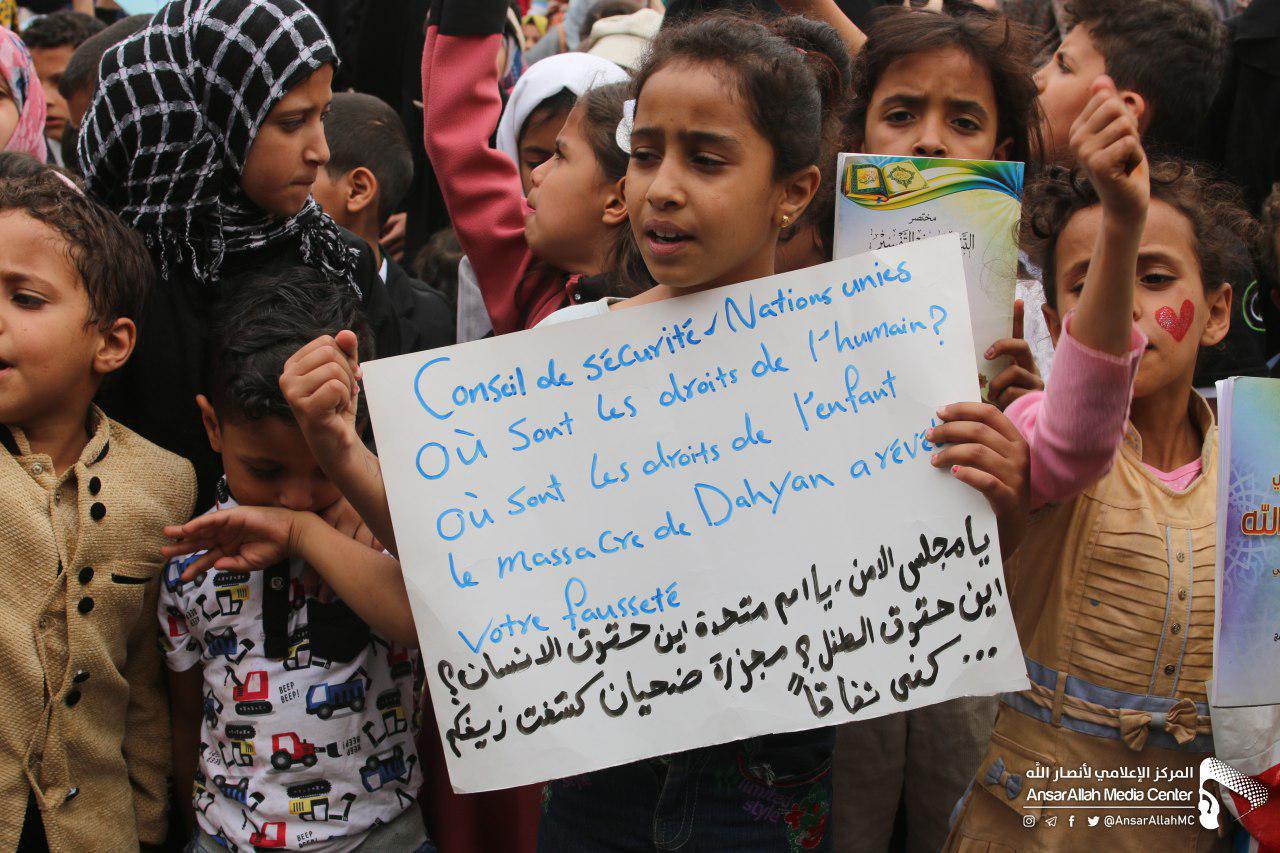 Conseil de sécurité, Nations unies
Où sont les droits de l'humain?
Où sont les droits de l'enfant
le massacre de Dahyan a révélé
Votre fausseté
يا مجلس الامن، يا امم متحدة اين حقوق الانسان؟
اين حقوق الطفل؟ مجزرة ضحيان كشفت زيفكم
كفى نفاقاً ...
مختصر
التفسير
الله
BEEP
BEEP!
style
المركز الإعلامي لأنصار الله
AnsarAllah Media Center
@AnsarAllahMC